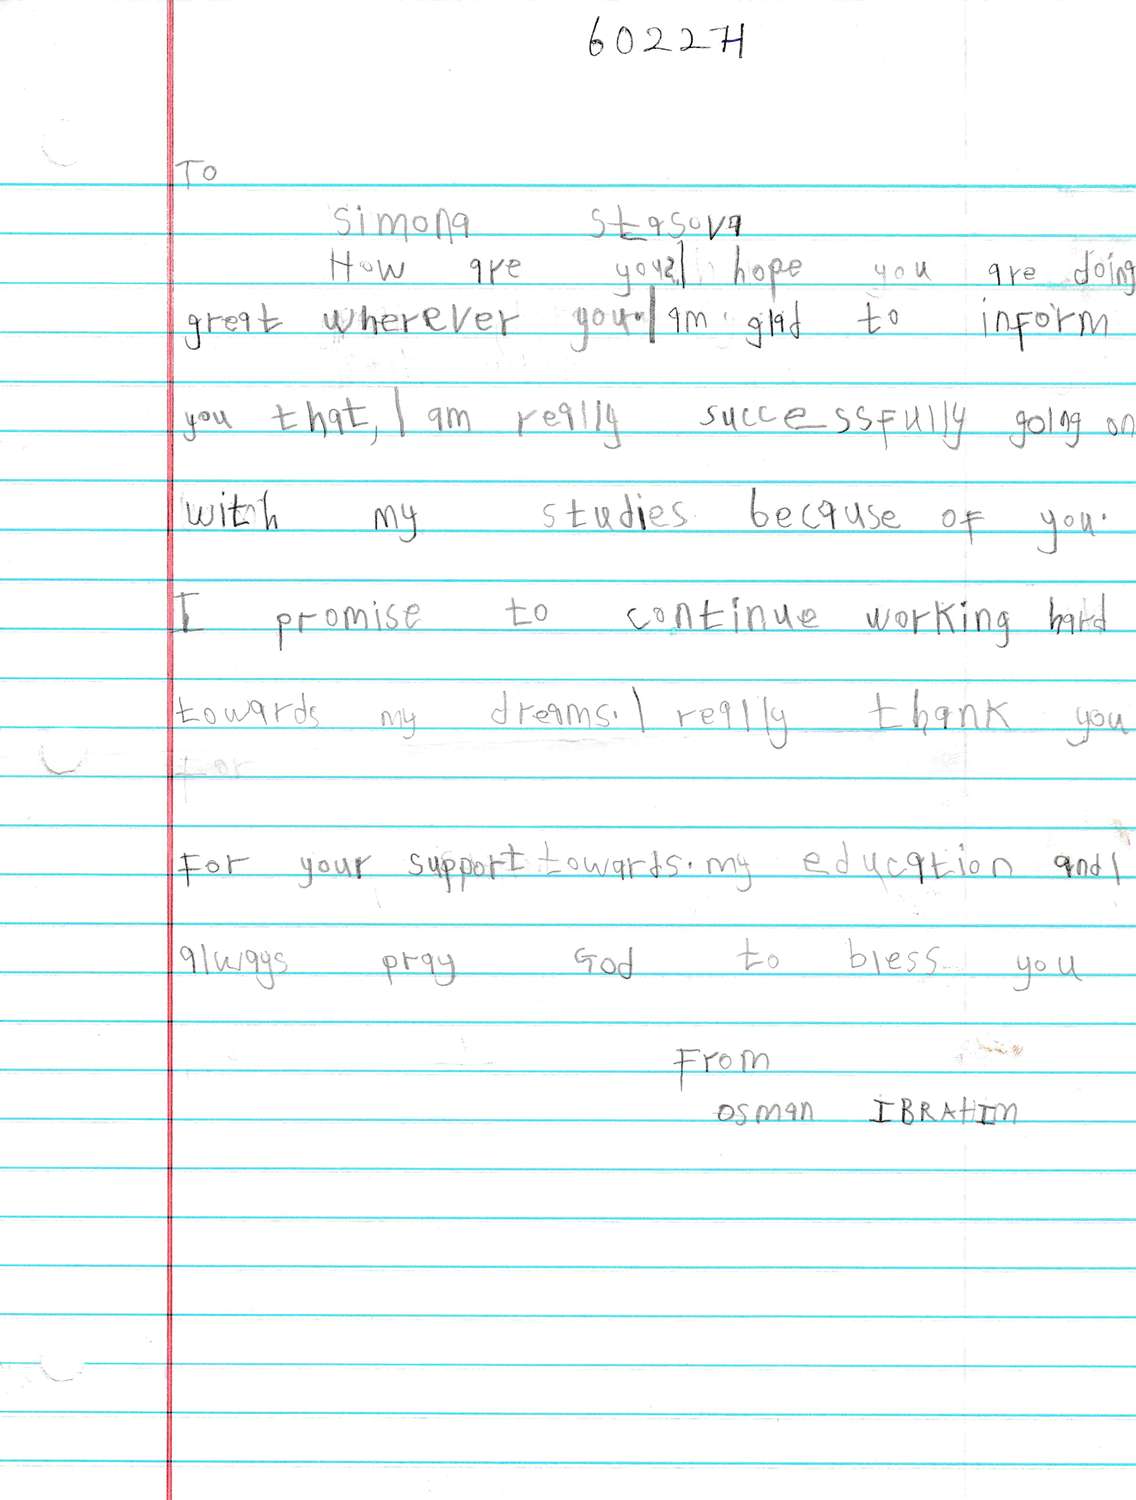 60227H
To
Simona Stasova
How are you?I hope you are doing
great wherever you.I am glad to inform
you that, I am really successfully going on
with my studies because of you.
I promise to continue working hard
towards my dreams. I really thank you
for
For your support towards. my education and I
always pray God to bless you
From
Osman IBRAHIM